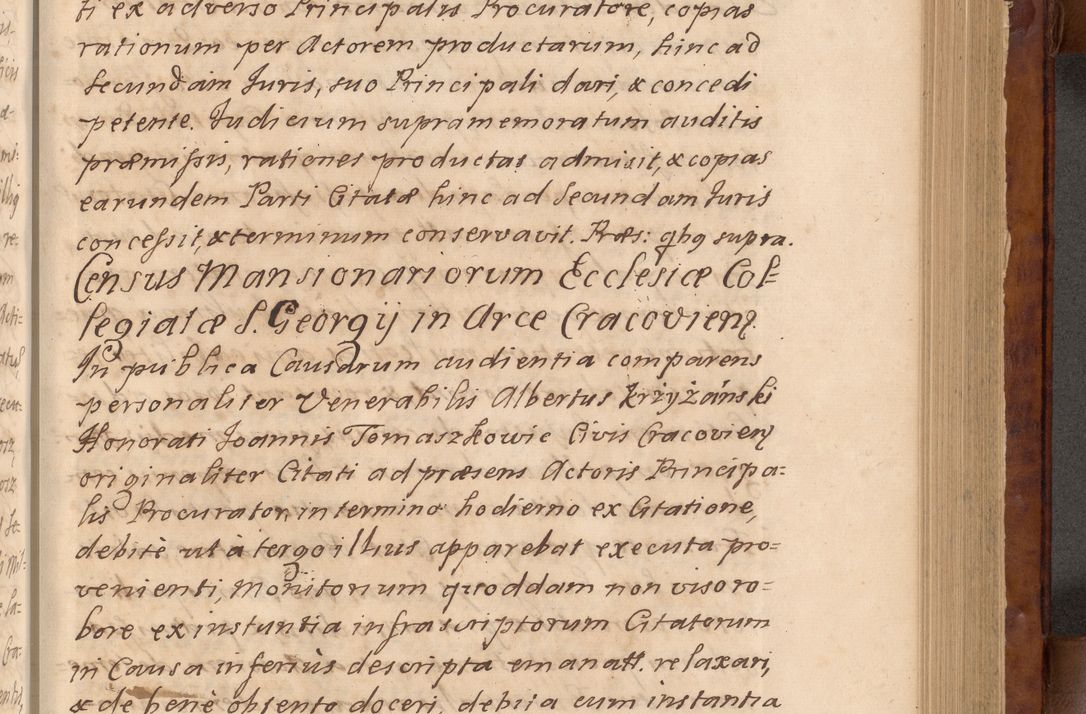 ti ex adverso Principalis Procuratore, copias
rationum per Actorem productarum, hinc ad
secundam Juris, suo Principali dari, & concedi
petente. Judicium supramemoratum auditis
præmissis, rationes productas admisit, & copias
earundem Parti Citatæ hinc ad secundam Juris
concessit, & terminum conservavit. Præs: qbq supra.
Census Mansionariorum Ecclesiæ Col-
legiatæ S. Georgij in Arce Cracovien
In publica Causarum audientia comparens
personaliter Venerabilis Albertus Krżyżánski
Honorati Joannis Tomaszkowic Civis Cracovien
originaliter Citati ad præsens Actoris Principa=
lis Procurator, in termino hodierno ex Citatione,
debitè ut à tergo illius apparebat executa pro=
venienti, Monitorium quoddam non viso ro=
bore ex instantia infrascriptorum Citatorum
in Causa inferiùs descripta emanatt. relaxari,
& de benè obsento doceri, debita cum instantia